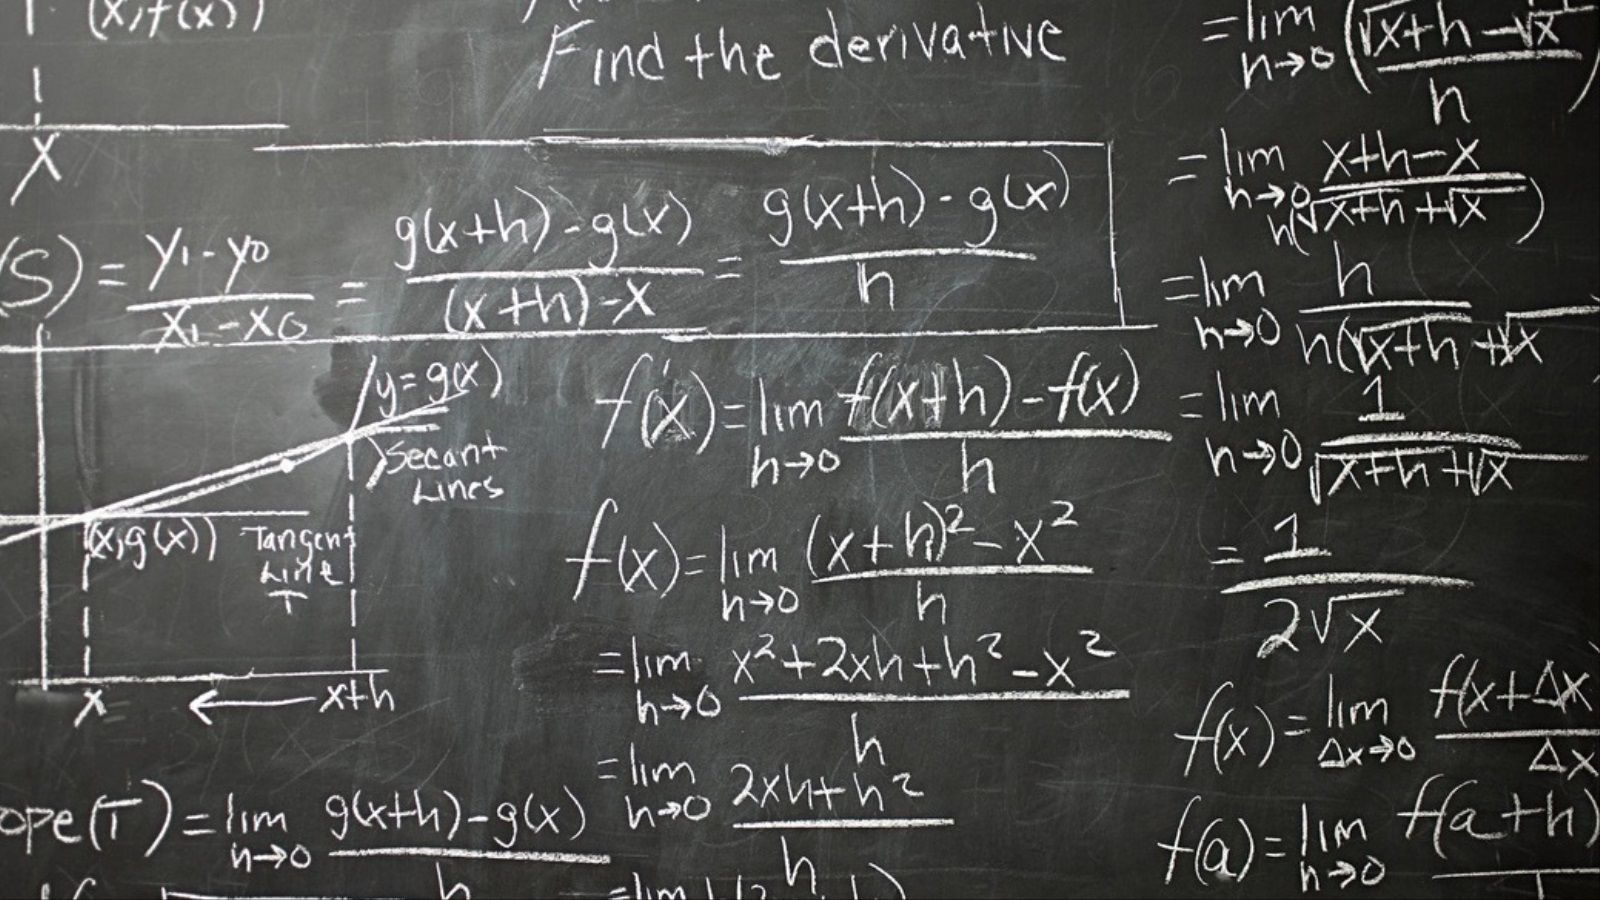 (x, f(x))
x
Find the derivative
(S) = y₁ - y₀ / x₁ - x₀ = g(x+h) - g(x) / (x+h) - x = g(x+h) - g(x) / h
y = g(x)
Secant
Lines
(x, g(x))
Tangent
Line
T
x ← x+h
ope(T) = lim h→0 g(x+h) - g(x) / h
f(x) = lim h→0 f(x+h) - f(x) / h
f(x) = lim h→0 (x+h)² - x² / h
= lim h→0 x² + 2xh + h² - x² / h
= lim h→0 2xh + h² / h
= lim
= lim h→0 (√x+h - √x / h)
= lim h→0 x+h-x / h(√x+h + √x)
= lim h→0 h / h(√x+h + √x
= lim h→0 1 / √x+h + √x
= 1 / 2√x
f(x) = lim Δx→0 f(x+Δx / Δx
f(a) = lim h→0 f(a+h)